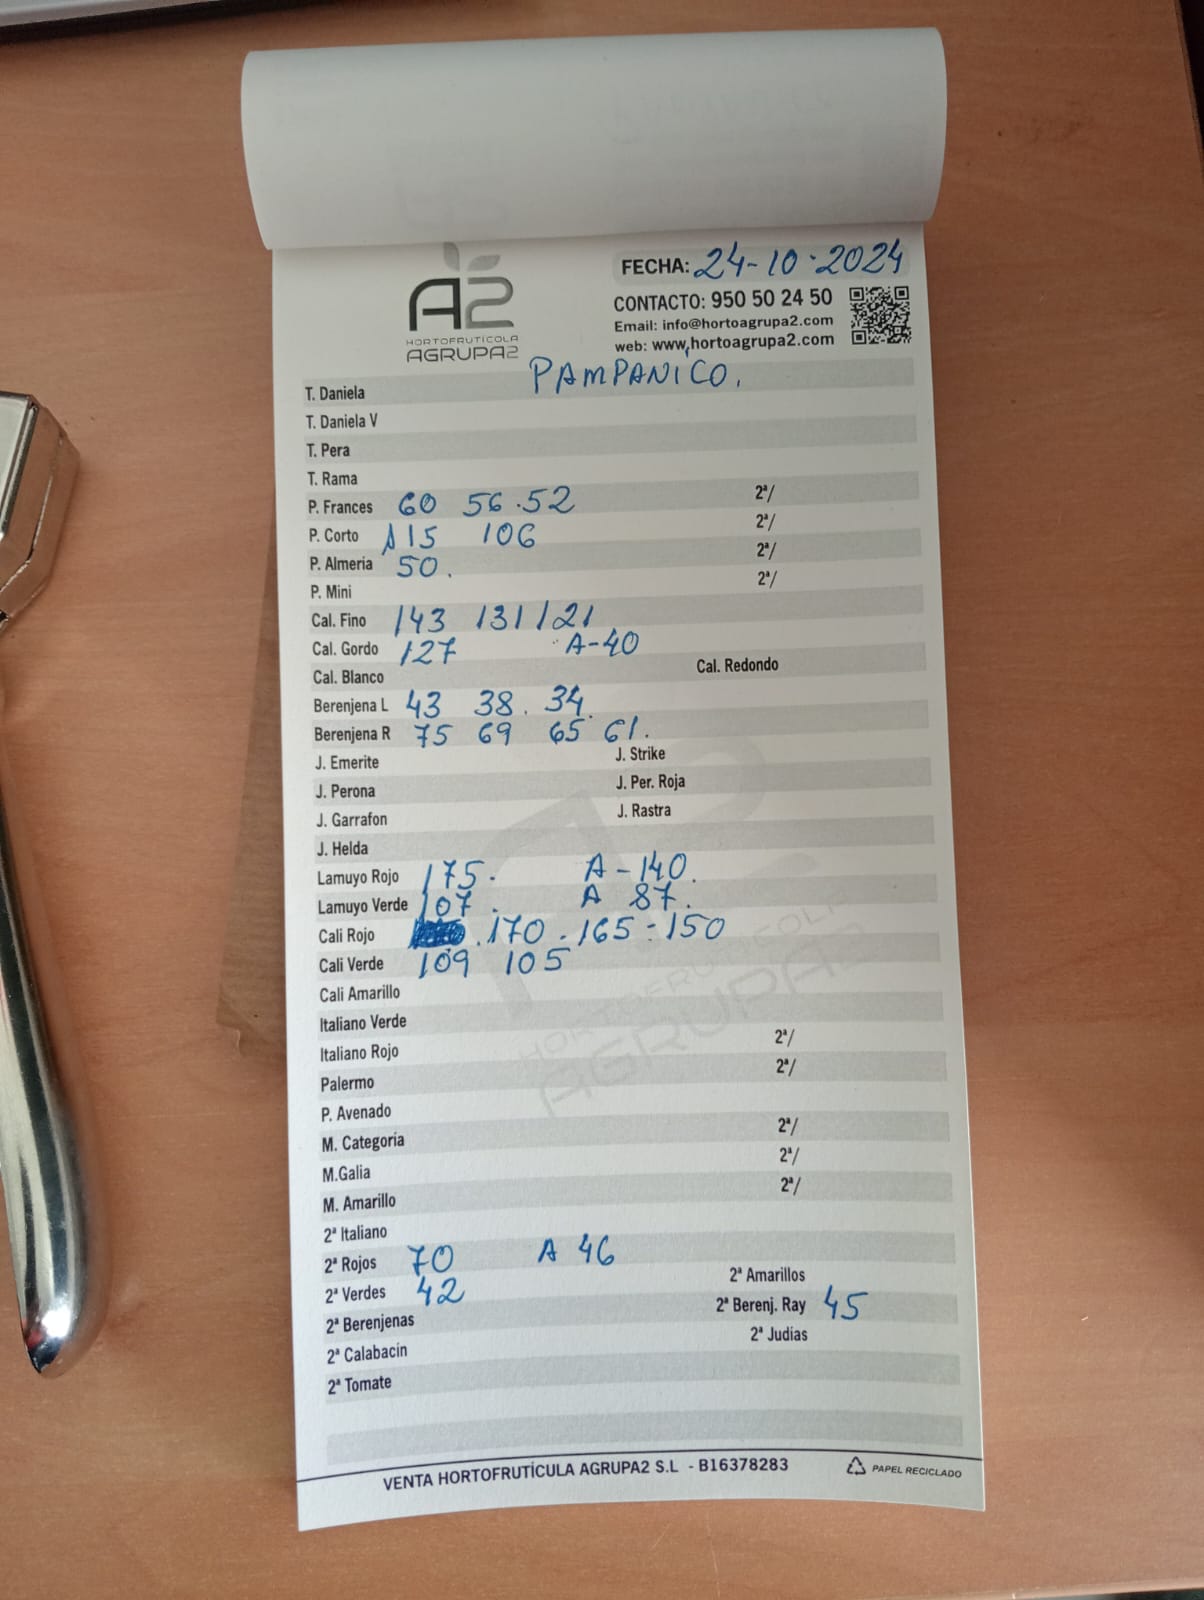 A2
HORTOFRUTÍCOLA
AGRUPA2
FECHA: 24-10-2024
CONTACTO: 950 50 24 50
Email: info@hortoagrupa2.com
web: www.hortoagrupa2.com
PAMPANICO.
T. Daniela
T. Daniela V
T. Pera
T. Rama
P. Frances 60 56.52 2ª/
P. Corto 115 106 2ª/
P. Almeria 50. 2ª/
P. Mini 2ª/
Cal. Fino 143 131 121
Cal. Gordo 127 A-40
Cal. Blanco Cal. Redondo
Berenjena L 43 38. 34.
Berenjena R 75 69 65 61.
J. Emerite J. Strike
J. Perona J. Per. Roja
J. Garrafon J. Rastra
J. Helda
Lamuyo Rojo 175. A-140.
Lamuyo Verde 107. A 87.
Cali Rojo .170-165-150
Cali Verde 109 105
Cali Amarillo
Italiano Verde
Italiano Rojo 2ª/
Palermo 2ª/
P. Avenado
M. Categoria 2ª/
M.Galia 2ª/
M. Amarillo 2ª/
2ª Italiano
2ª Rojos 70 A 46
2ª Verdes 42 2ª Amarillos
2ª Berenjenas 2ª Berenj. Ray 45
2ª Calabacin 2ª Judias
2ª Tomate
HORTOFRUTÍCOLA
AGRUPA2
VENTA HORTOFRUTÍCULA AGRUPA2 S.L - B16378283
PAPEL RECICLADO